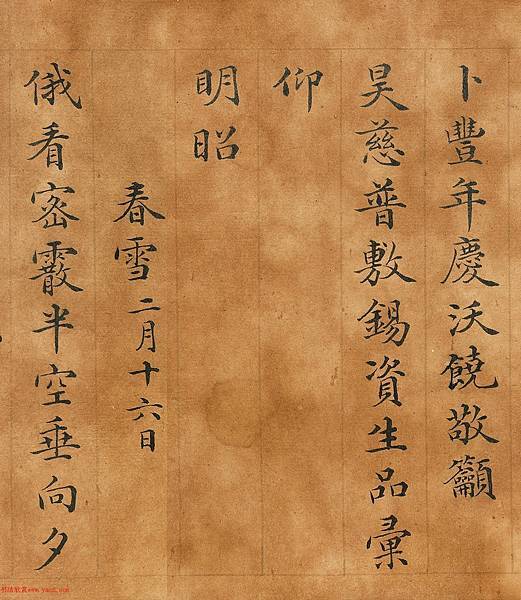 卜豐年慶沃饒敬籲
昊慈普敷錫資生品彙
仰
明昭
春雪二月十六日
俄看密霰半空垂向夕
书法欣赏www.yac8.com